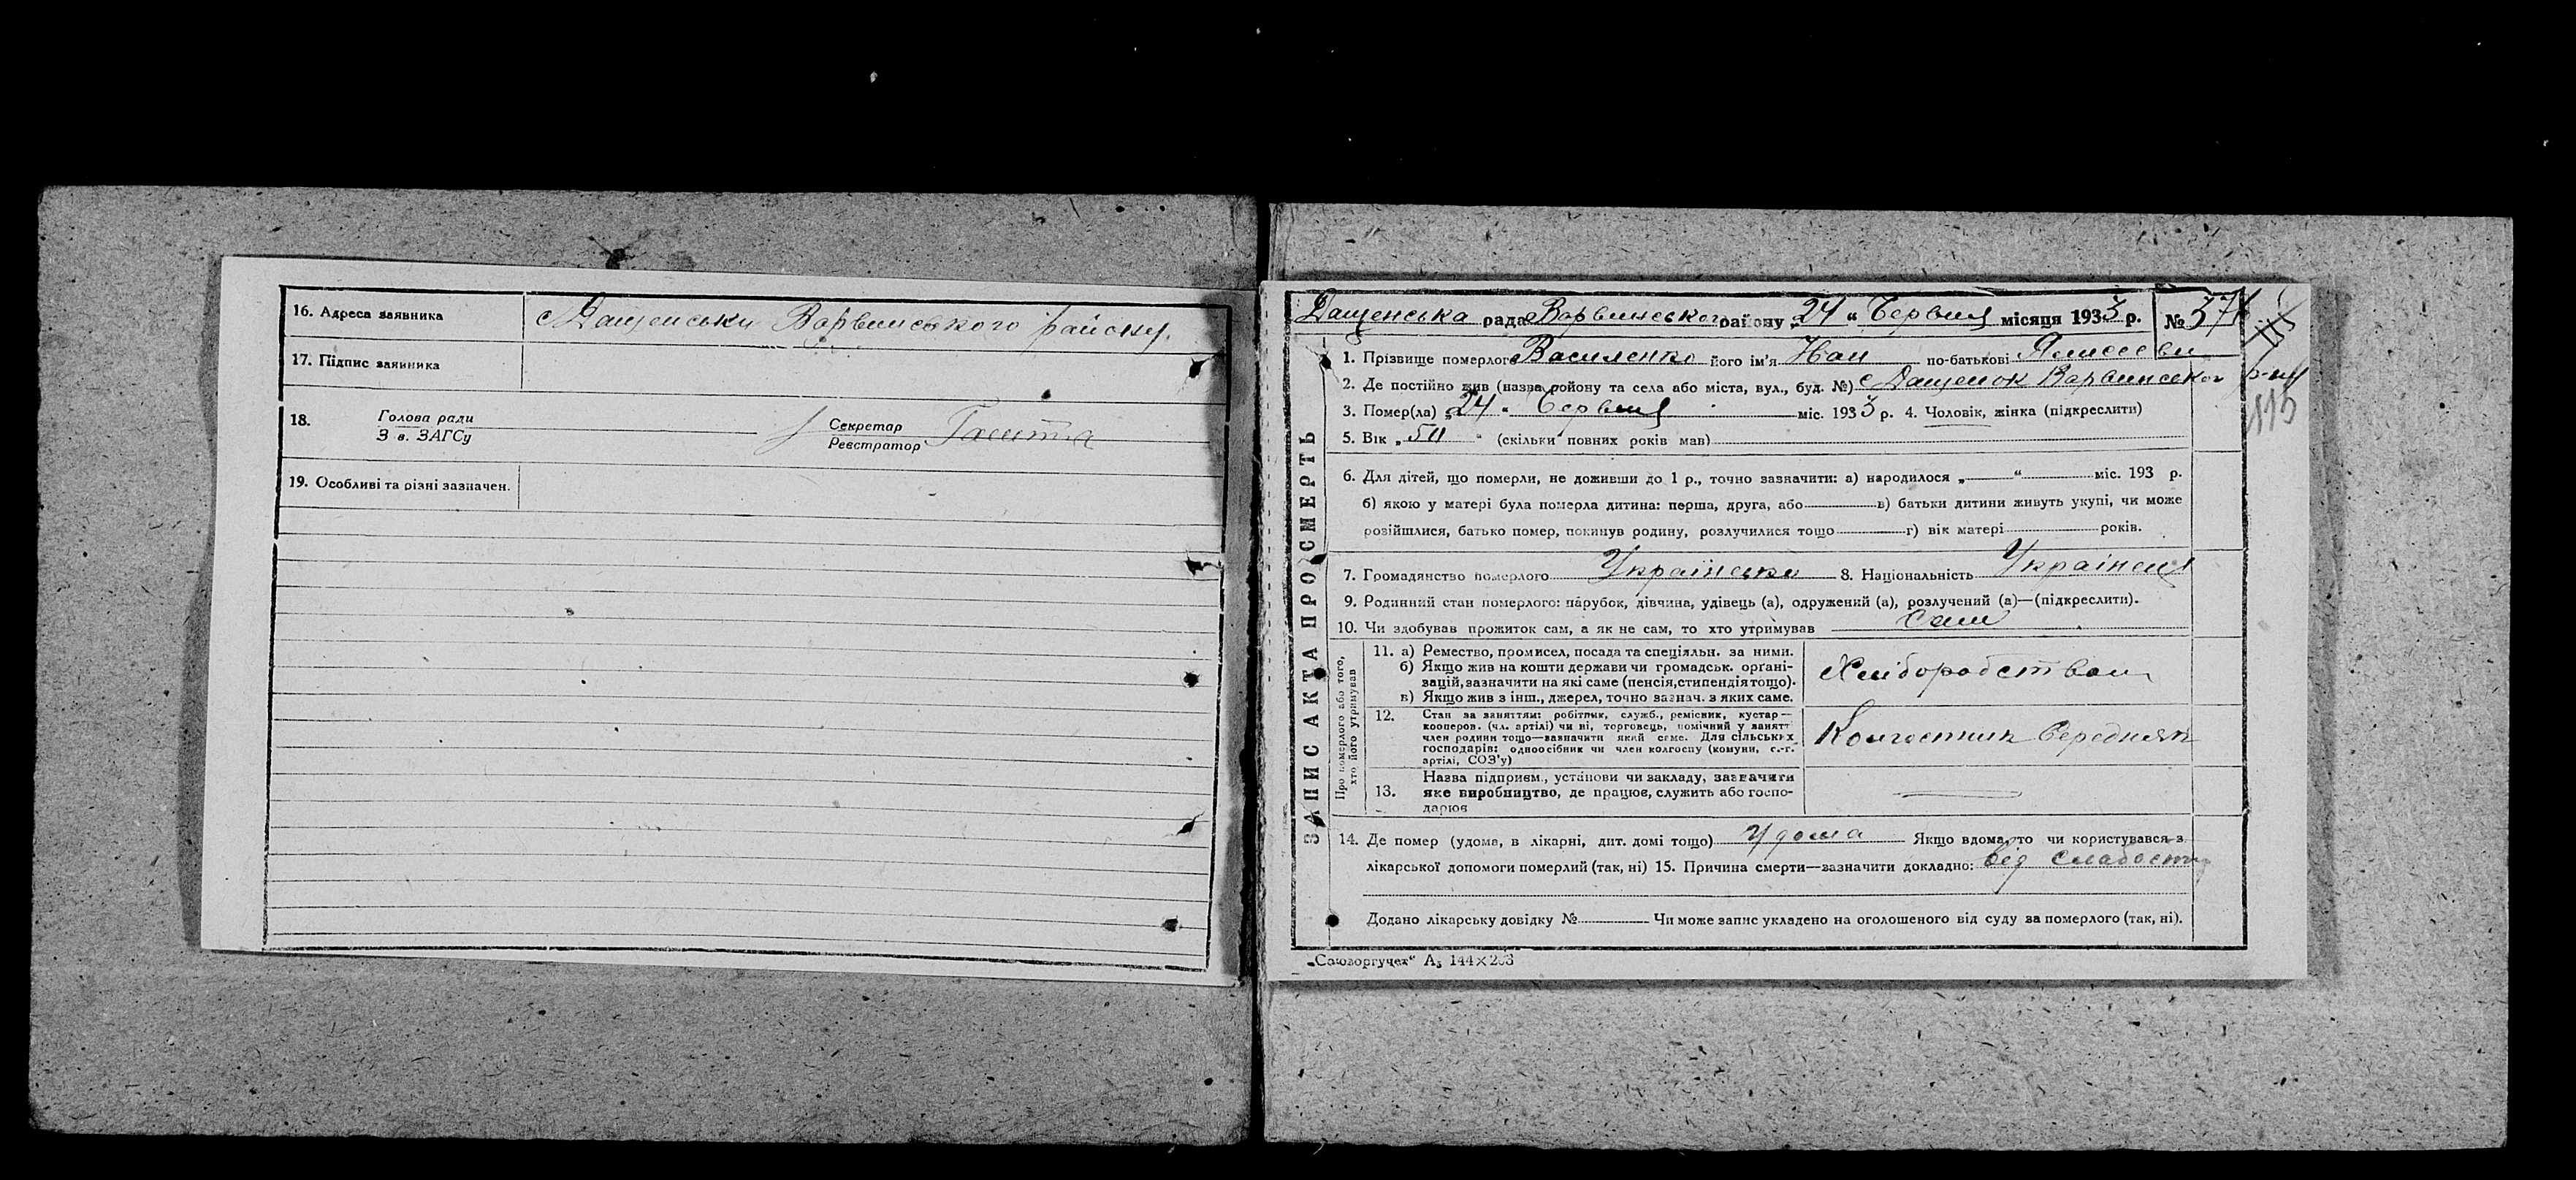 16. Адреса заявника с Дащенськи Варвинського району.
17. Підпис заявника
18. Голова ради
З в. ЗАГСу
Секретар
Реєстратор
19. Особливі та різні зазначен.
ЗАПИС АКТА ПРО СМЕРТЬ
Дащенська рада Варвинського району „24“ Червня місяця 1933 р. № 37
1. Прізвище померлого Василенко його ім'я Иван по-батькові
2. Де постійно жив (назва району та села або міста, вул., буд. №) с Дащенок Варвинського р-ну
115
3. Помер(ла) „24“ Червня міс. 1933 р. 4. Чоловік, жінка (підкреслити)
5. Вік „50“ (скільки повних років мав)
6. Для дітей, що померли, не доживши до 1 р., точно зазначити: а) народилося „ “ міс. 193 р.
б) якою у матері була померла дитина: перша, друга, або в) батьки дитини живуть укупі, чи може
розійшлися, батько помер, покинув родину, розлучилися тощо г) вік матері років.
7. Громадянство померлого Українське 8. Національність Українец
9. Родинний стан померлого: парубок, дівчина, удівець (а), одружений (а), розлучений (а)—(підкреслити).
10. Чи здобував прожиток сам, а як не сам, то хто утримував Сам
Про померлого або того, хто його утримував
11. а) Ремество, промисел, посада та спеціяльн. за ними.
б) Якщо жив на кошти держави чи громадськ. орґані-
зацій, зазначити на які саме (пенсія, стипендія тощо).
в) Якщо жив з інш., джерел, точно зазнач. з яких саме.
Хліборобством
12. Стан за заняттям: робітник, служб., ремісник, кустар—
кооперов. (чл. артілі) чи ні, торговець, помічний у занятт
член родини тощо—зазначити який саме. Для сільських
господарів: одноосібник чи член колгоспу (комуни, с.-г.
артілі, СОЗ'у)
Колгоспник Середняк
13. Назва підприєм., установи чи закладу, зазначити
яке виробництво, де працює, служить або госпо-
дарює
14. Де помер (удома, в лікарні, дит. домі тощо) Удома Якщо вдома, то чи користувався з
лікарської допомоги померлий (так, ні) 15. Причина смерти—зазначити докладно: від слабости
Додано лікарську довідку № Чи може запис укладено на оголошеного від суду за померлого (так, ні).
„Союзоргучет“ А₅ 144×203